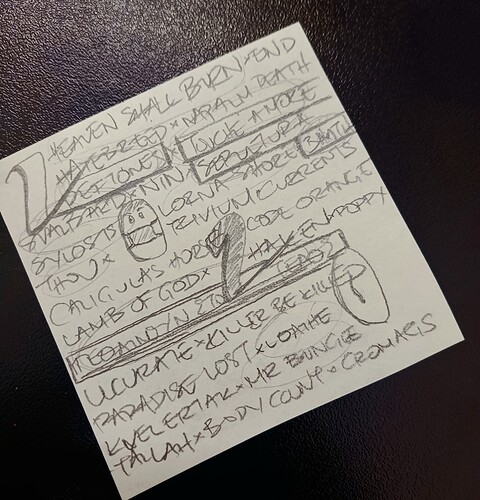 HEAVEN SHALL BURN × END
HATEBREED × NAPALM DEATH
DEFTONES TOUCHE AMORE
SVALBARD × NIN SEPULTURA
SYLOSIS ORNA SHORE
THOU × TRIVIUM × CURRENTS
CALIGULAS HORSE CODE ORANGE
LAMB OF GOD × HAKEN × POPPY
UCURATE × KILLER BE KILLED
PARADISE LOST × LOATHE
KVELERTAK × MR BUNGLE
TALLAH × BODY COUNT × CROMAGS